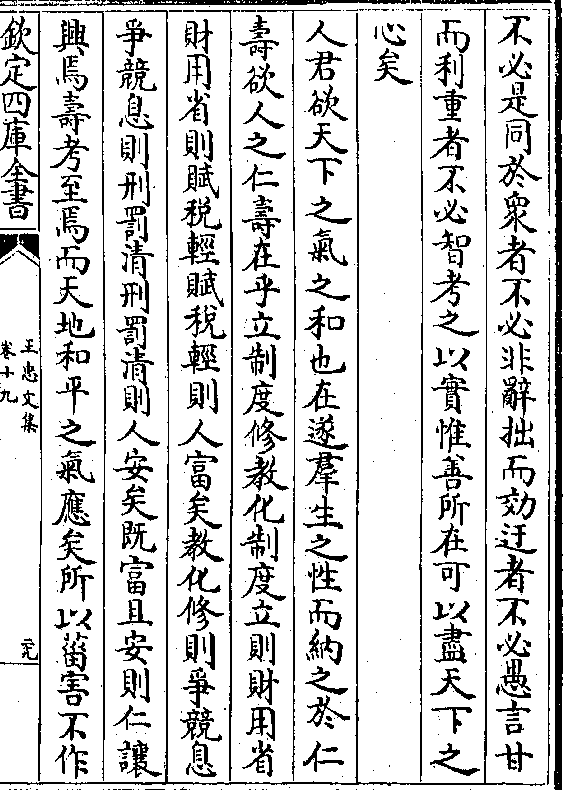 不必是同於衆者不必非辭拙而効迂者不必愚言甘
而利重者不必智考之以實惟善所在可以盡天下之
心矣
人君欲天下之氣之和也在遂羣生之性而納之於仁
壽欲人之仁壽在乎立制度修教化制度立則財用省
財用省則賦税輕賦税輕則人富矣教化修則爭競息
爭競息則刑罰清刑罰清則人安矣既富且安則仁讓
興焉壽考至焉而天地和平之氣應矣所以菑害不作
欽定四庫全書
王忠文集
卷十九